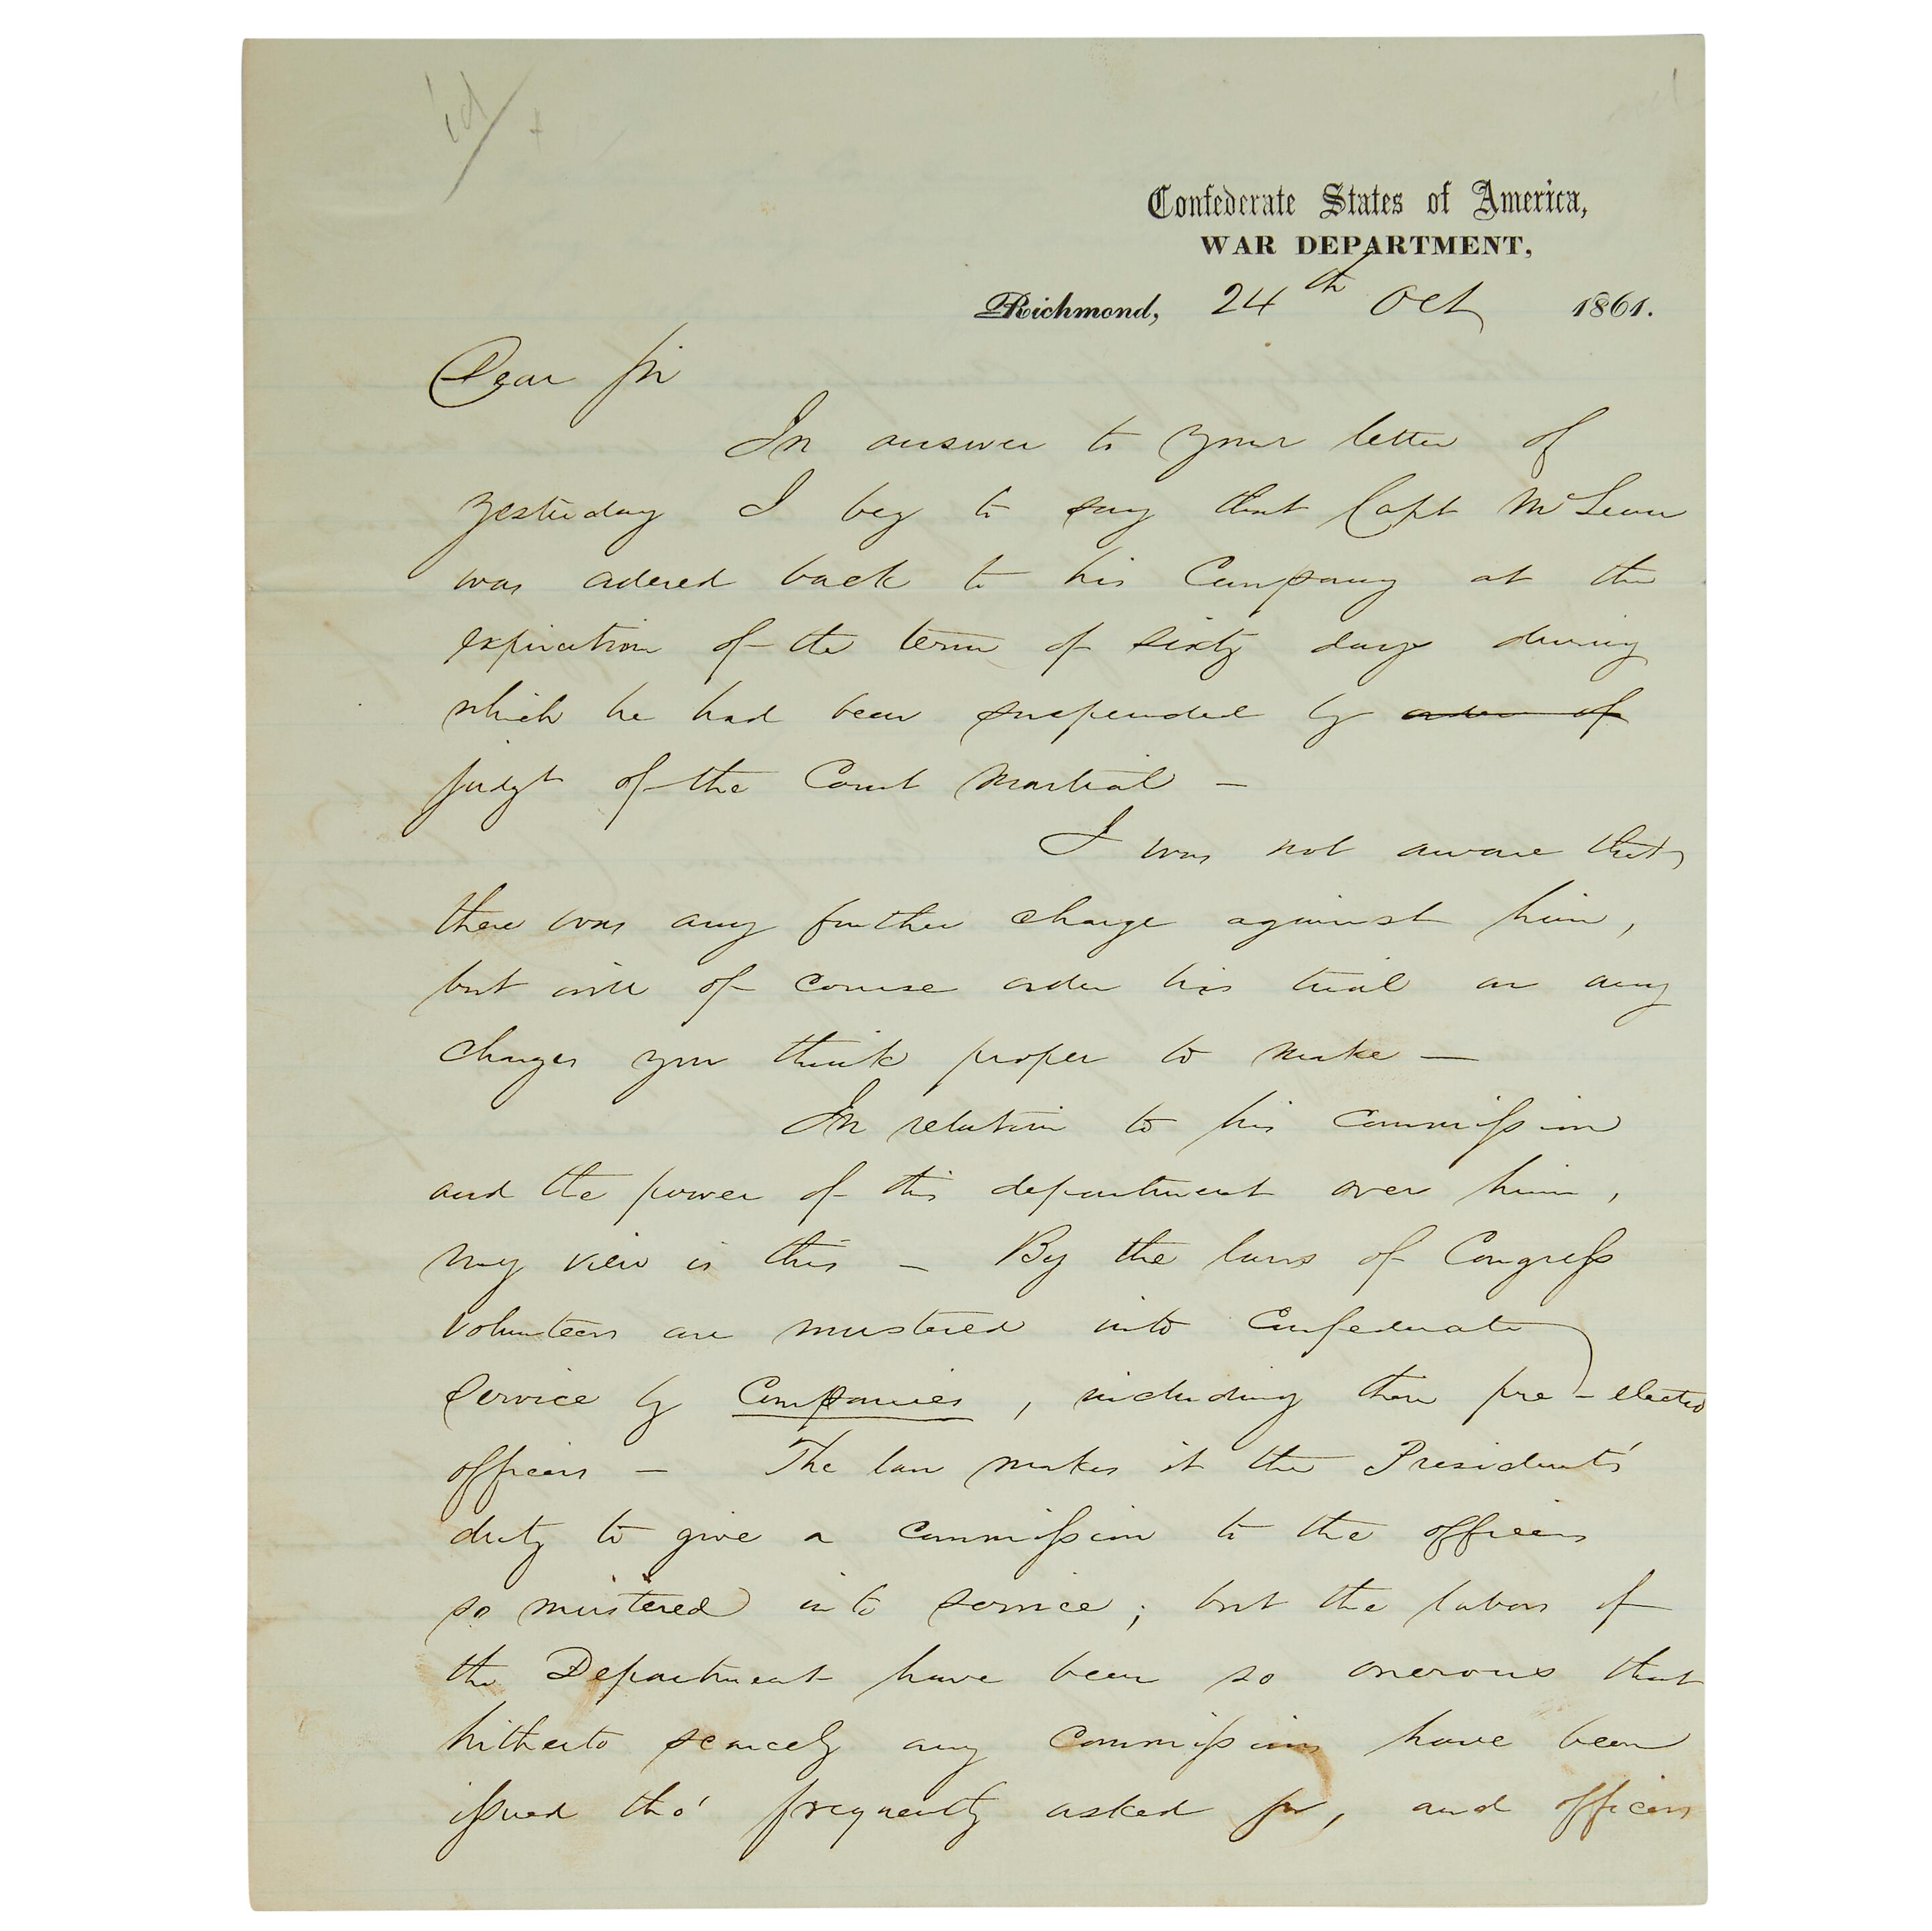 Confederate States of America,
WAR DEPARTMENT,
Richmond, 24th Oct 1861.
Dear Sir
In answer to your letter of
yesterday I beg to say that Capt McLean
was ordered back to his Company at the
expiration of the term of sixty days during
which he had been suspended by order of
judgt of the Court Martial —
I was not aware that
there was any further charge against him,
but will of course order his trial on any
charges you think proper to make —
In relation to his Commission
and the power of this department over him,
my view is this — By the laws of Congress
volunteers are mustered into Confederate
service by Companies, including their pre-elected
officers — The law makes it the President's
duty to give a commission to the officers
so mustered into service; but the labors of
the Department have been so onerous that
hitherto scarcely any Commissions have been
issued tho' frequently asked for, and officers